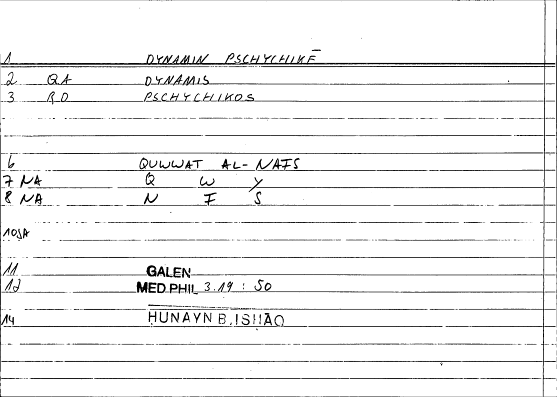 1 DYNAMIN PSCHYCHIKĒ
2 QA DYNAMIS
3 RD PSCHYCHIKOS
6 QUWWAT AL-NAFS
7 NA Q W Y
8 NA N F S
10SA
11 GALEN
12 MED.PHIL 3.19 : 50
14 HUNAYN B.ISHAQ